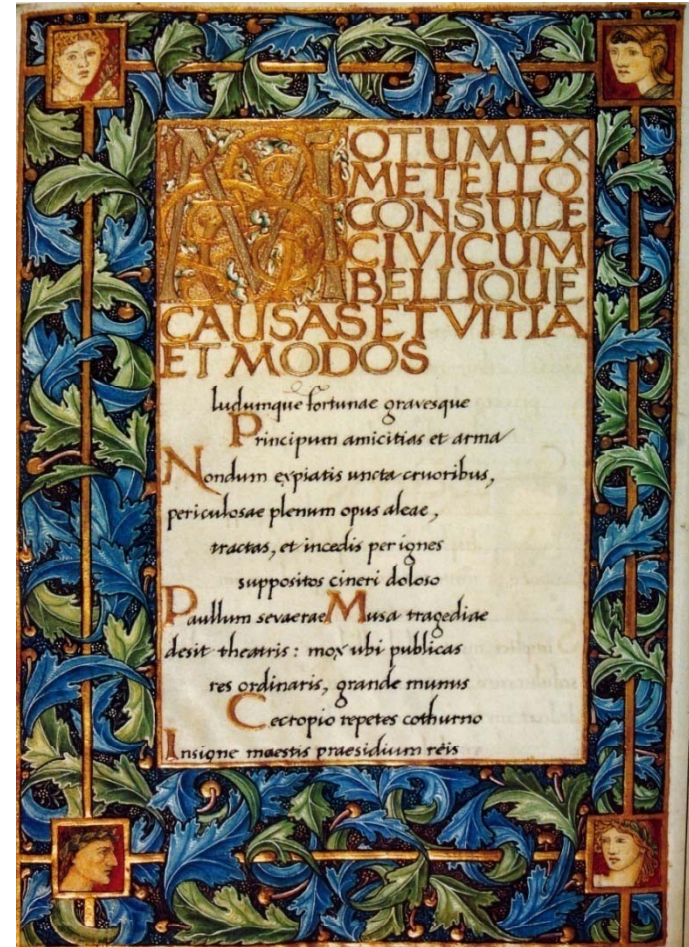 MOTUM EX
METELLO
CONSULE
CIVICUM
BELLIQUE
CAUSAS ET VITIA
ET MODOS
ludumque fortunae gravesque
Principum amicitias et arma
Nondum expiatis uncta cruoribus,
periculosae plenum opus aleae,
tractas, et incedis per ignes
suppositos cineri doloso
Paullum sevaerae Musa tragediae
desit theatris: mox ubi publicas
res ordinaris, grande munus
Cecropio repetes cothurno
Insigne maestis praesidium reis